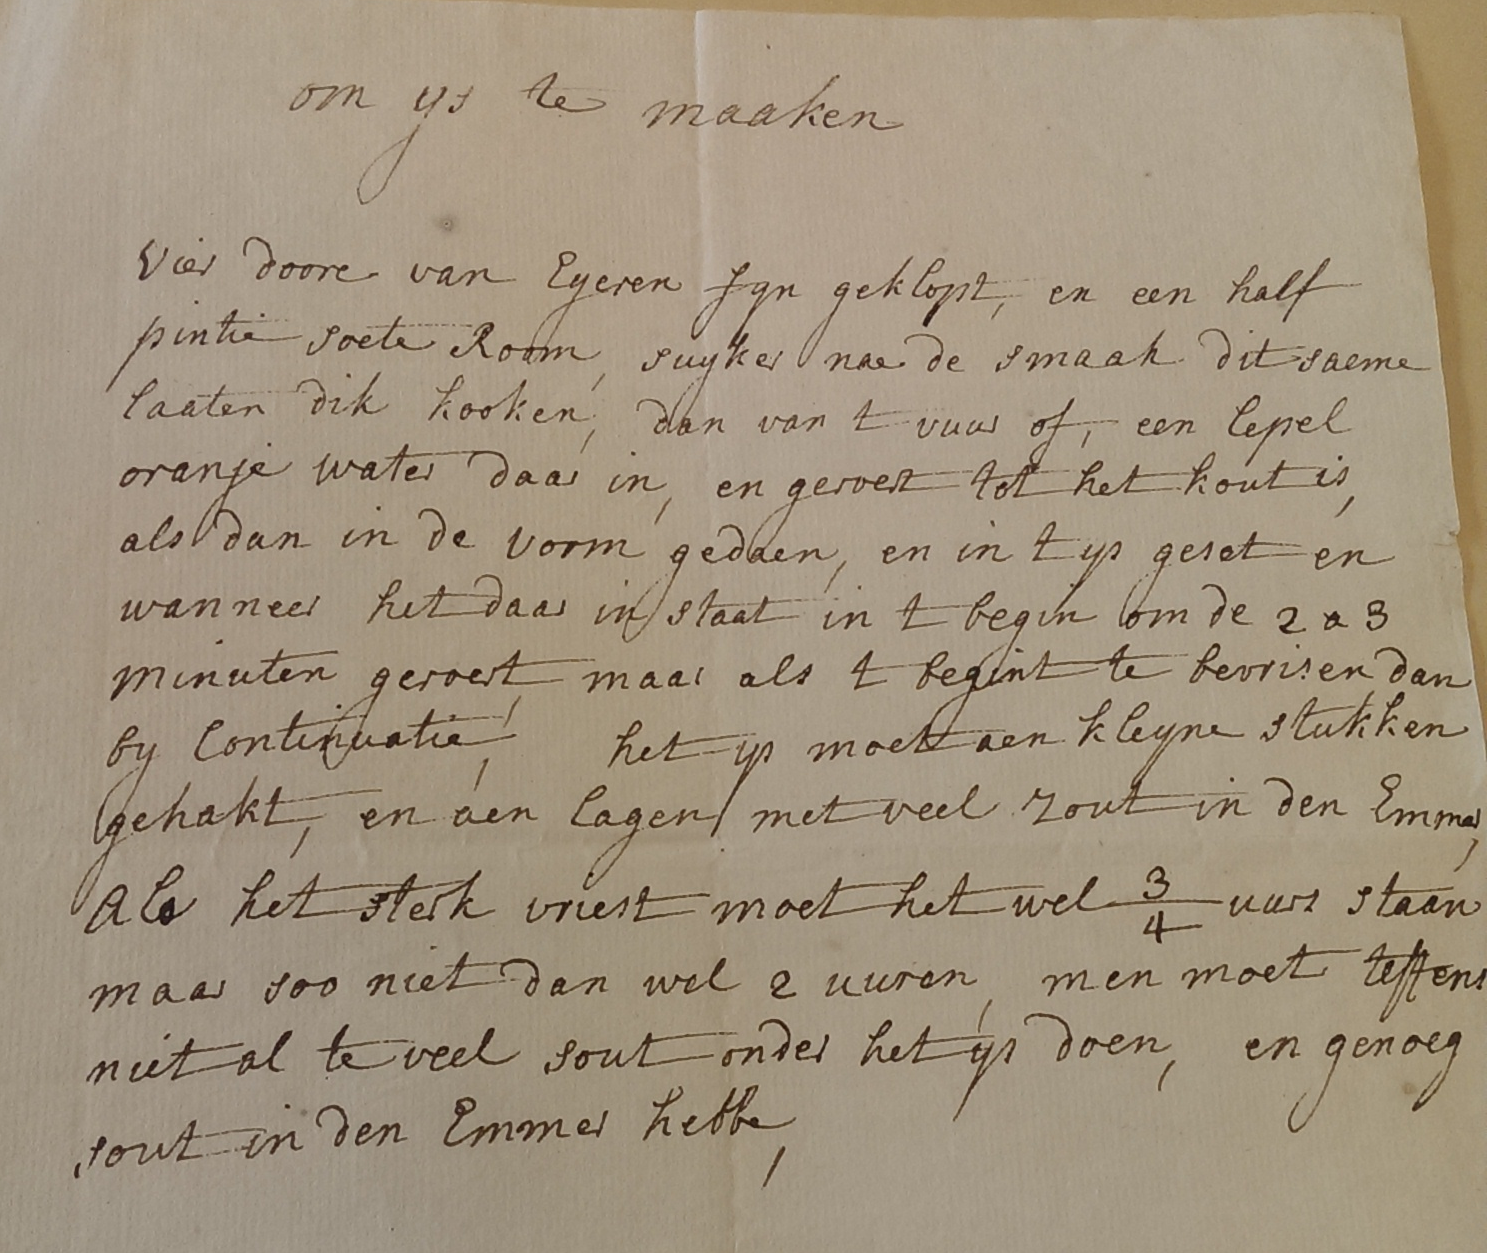 om ys te maaken
Vier doore van Eyeren fyn geklopt, en een half
pintie soete Room, suyker nae de smaak dit saeme
laaten dik kooken, dan van t vuur of, een lepel
oranje water daar in, en geroert tot het kout is,
als dan in de vorm gedaen, en in t ys geset en
wanneer het daar in staat in t begin om de 2 a 3
minuten geroert, maar als t begint te bevrisen dan
by Continuatie, het ys moet aen kleyne stukken
gehakt, en aen lagen met veel zout in den Emmer,
Als het sterk vriest moet het wel 3/4 uurs staan
maar soo niet dan wel 2 uuren, men moet teffens
niet al te veel sout onder het ys doen, en genoeg
sout in den Emmer hebbe,